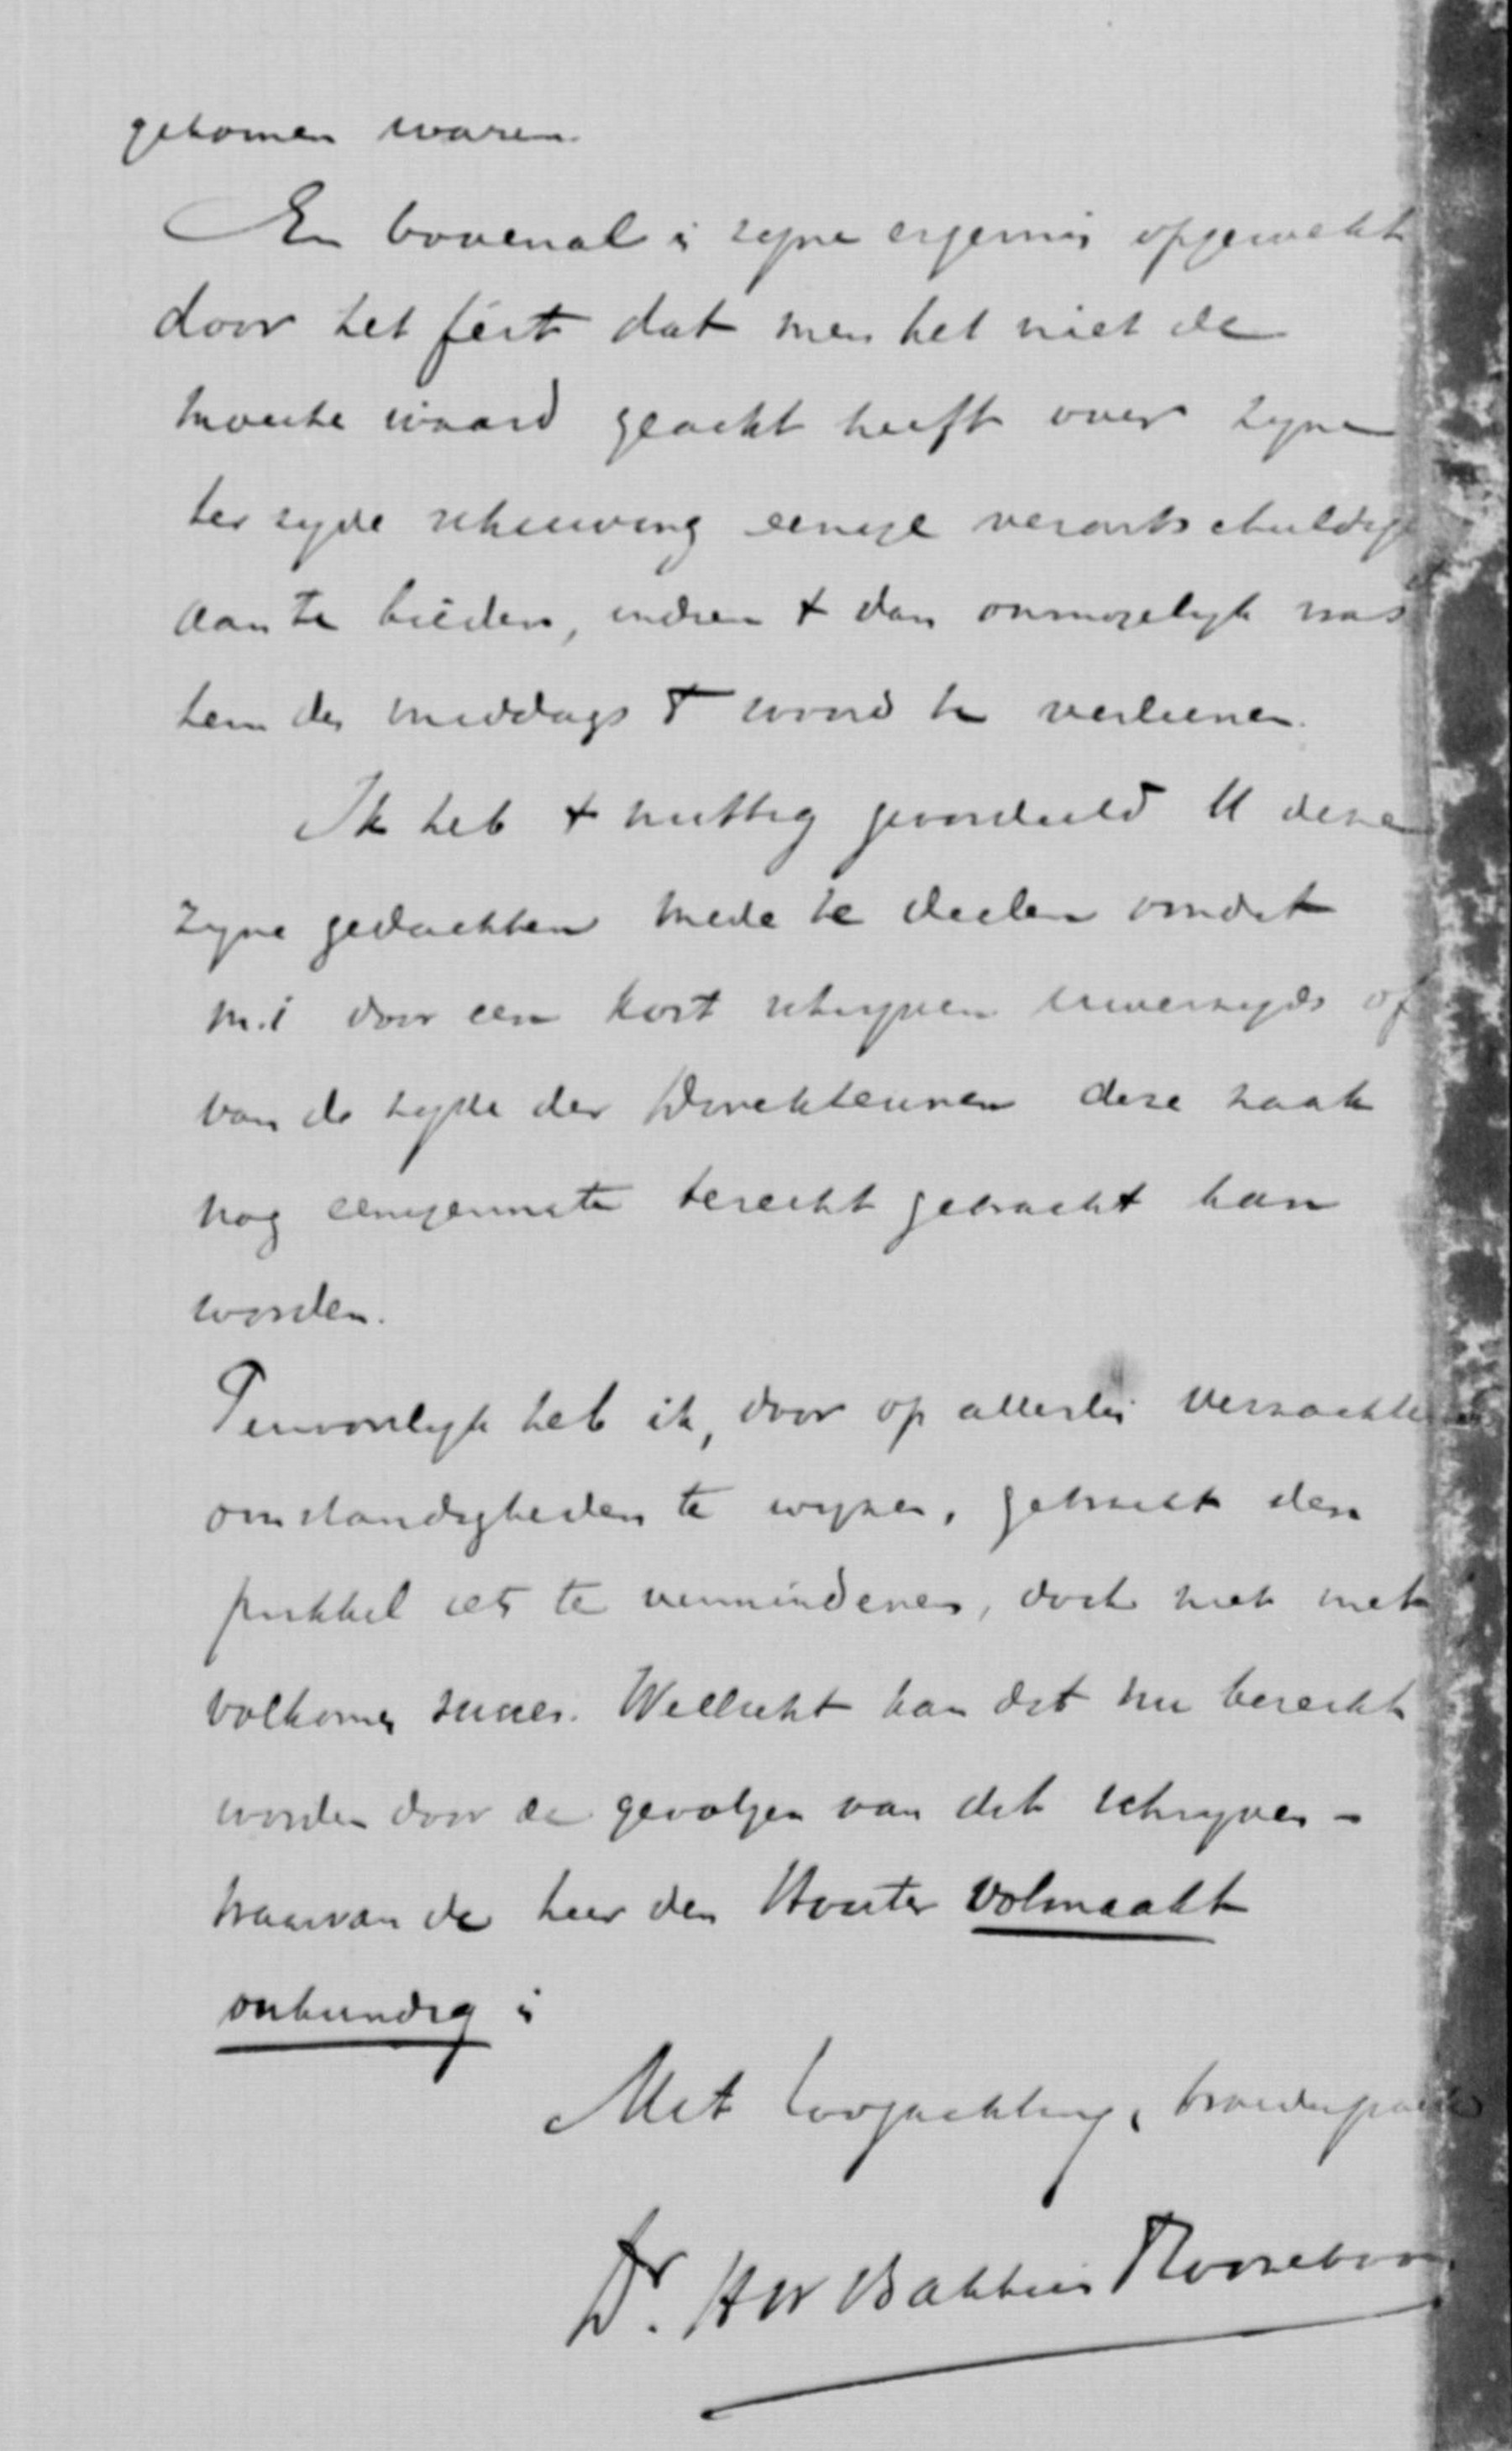 gekomen waren.
En bovenal is zyne ergernis opgewekt
door het feit dat men het niet de
moeite waard geacht heeft over zyne
ter zyde schuiving eenige verontschuldig
aan te bieden, indien 't dan onmogelyk was
hem des middags 't woord te verleenen.
Ik heb 't nuttig geoordeeld U deze
zyne gedachten mede te deelen omdat
m.i door een kort schryven Uwerzyds of
van de zyde der Direkteuren deze zaak
nog eenigermate terecht gebracht kan
worden.
Persoonlyk heb ik, door op allerlei verzachte
omstandigheden te wyzen, getracht den
prikkel iets te verminderen, doch niet met
volkomen succes. Wellicht kan dat nu bereikt
worden door de gevolgen van dit schryven -
waarvan de heer den Houter volmaakt
onkundig is
Met hoogachting,
Dr. HW Bakhuis Roozeboom